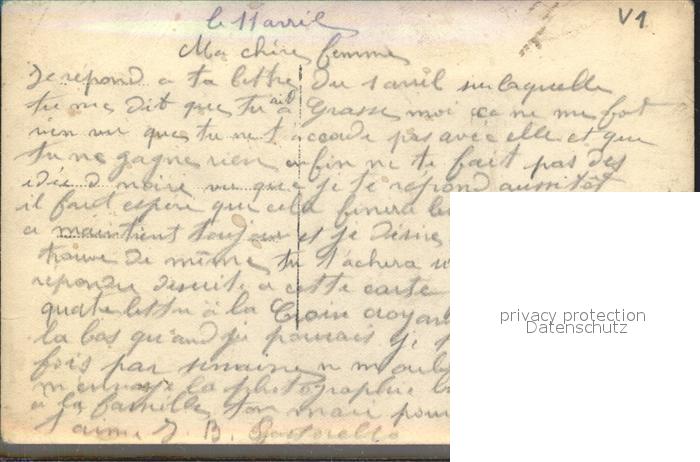 le 11 avril
V1
Ma chère femme
Je répond a ta lettre du 1 avril sur laquelle
tu me dit que tu ait a Grasse moi ça ne me fot
rien vu que tu ne t acorde pas avec elle et que
tu ne gagne rien enfin ne te fait pas des
idée d noire vu que je te répond aussitôt
il faut espere que cela finira
a maintient toujour et je désire
trouve de même tu tachera
répondre desuite a cette carte
quatre lettre à la Croix croyant
la bas quand je pouvais je
fois par semaine n m oubl
m envoye la photographie
a la famille ton mari pour
t aime J. B. Passorello
privacy protection
Datenschutz